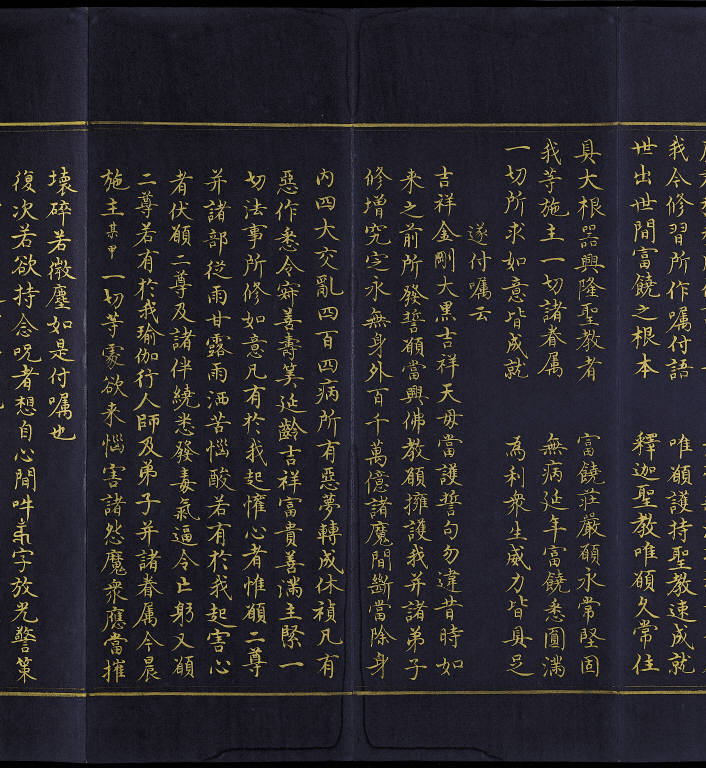 我今修習所作囑付語　唯願護持聖教速成就
世出世間富饒之根本　釋迦聖教唯願久常住
具大根器興隆聖教者　富饒莊嚴願永常堅固
我等施主一切諸眷屬　無病延年富饒悉圓滿
一切所求如意皆成就　為利衆生威力皆具足
遂付囑云
吉祥金剛大黑吉祥天母當護誓句勿違昔時如
来之前所發誓願當興佛教願擁護我并諸弟子
修增究定永無身外百千萬億諸魔間斷當除身
內四大交亂四百四病所有惡夢轉成休禎凡有
惡作悉令寂善壽筭延齡吉祥富貴善滿主緊一
切法事所修如意凡有於我起懽心者惟願二尊
并諸部從雨甘露雨洒苦惱酸若有於我起害心
者伏願二尊及諸伴繞悉發毒氣逼令亡躬又願
二尊若有於我瑜伽行人師及弟子并諸眷屬今晨
施主某甲一切等處欲来惱害諸怨魔衆應當摧
壞碎若微塵如是付囑也
復次若欲持念呪者想自心間吽字放光警策